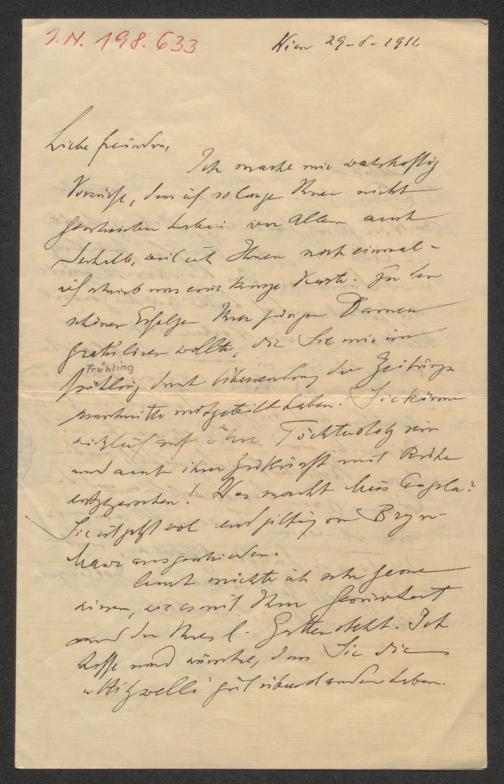 I.N. 198.633
Wien 29-8-1911
Liebe Freundin,
Ich mache mir wahrhaftig
Vorwürfe, dass ich so lange Ihnen nicht
geschrieben habe, vor Allem auch
deshalb, weil ich Ihnen noch einmal -
ich schrieb nur eine kurze Karte - zu den
schönen Erfolgen Ihrer jungen Damen
gratulieren wollte, die Sie mir im
Frühling
Frühling durch Übersendung der Zeitungs
ausschnitte mitgeteilt haben. Sie können
auf Ihre Töchter stolz sein
und auch ihrer Zukunft mit Ruhe
entgegensehen! Was macht Miss
Sie ist jetzt wohl endgiltig von Bryn
Mawr ausgeschieden.
Auch möchte ich sehr gerne
wissen, wie es mit Ihrer Gesundheit
und der Ihres l. Gatten steht. Ich
hoffe und wünsche, dass Sie die
"Hitzwelle" gut überstanden haben.